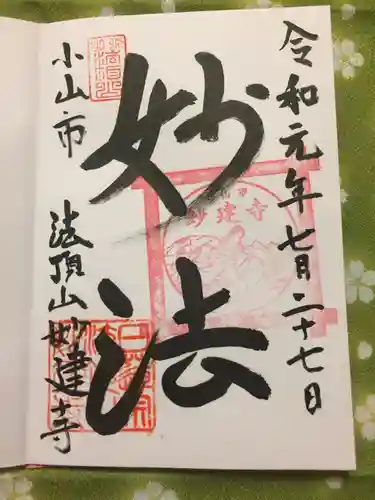 令和元年七月二十七日
妙法
小山市 法頂山妙建寺
妙建寺